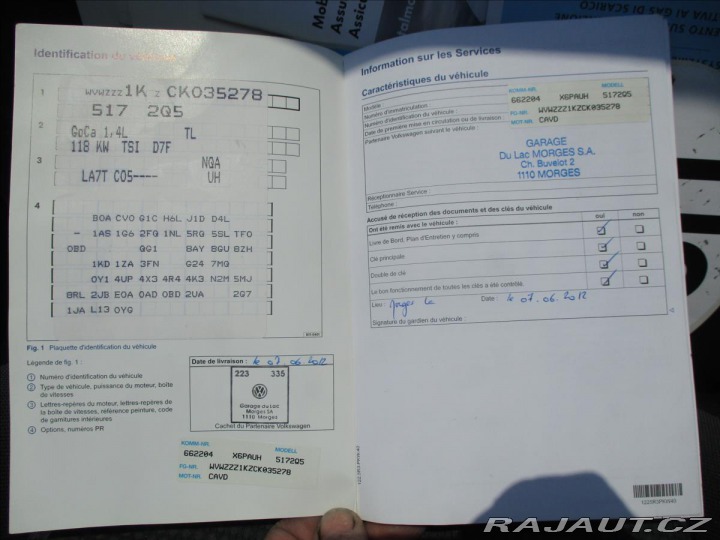 Identification du véhicule
1
WVWZZZ1K Z CK035278
517 2Q5
2
GoCa 1,4L TL
118 KW TSI D7F
3
NQA
LA7T C05---- UH
4
BOA CVO G1C H6L J1D D4L
- 1AS 1G6 2FG 1NL 5RG 5SL TFO
OBD GG1 BAY 8GU 8ZH
1KD 1ZA 3FN G24 7MQ
OY1 4UP 4X3 4R4 4K3 N2M 5MJ
8RL 2JB EOA OAD OBD 2UA 2G7
1JA L13 OYG
Fig. 1 Plaquette d'identification du véhicule
Légende de fig. 1 :
1 Numéro d'identification du véhicule
2 Type de véhicule, puissance du moteur, boîte
de vitesses
3 Lettres-repères du moteur, lettres-repères de
la boîte de vitesses, référence peinture, code
de garnitures intérieures
4 Options, numéros PR
Date de livraison : le 07.06.2012
223 335
Garage du Lac
Morges SA
1110 Morges
Cachet du Partenaire Volkswagen
KOMM-NR. MODELL
662204 X6PAUH 5172Q5
FG-NR. WVWZZZ1KZCK035278
MOT-NR. CAVD
Information sur les Services
Caractéristiques du véhicule
Modèle :
Numéro d'immatriculation :
Numéro d'identification du véhicule :
Date de première mise en circulation ou de livraison :
Partenaire Volkswagen suivant le véhicule :
KOMM-NR. MODELL
662204 X6PAUH 5172Q5
FG-NR. WVWZZZ1KZCK035278
MOT-NR. CAVD
GARAGE
Du Lac MORGES S.A.
Ch. Buvelot 2
1110 MORGES
Réceptionnaire Service :
Téléphone :
Accusé de réception des documents et des clés du véhicule
Ont été remis avec le véhicule : oui non
Livre de Bord, Plan d'Entretien y compris
Clé principale
Double de clé
Le bon fonctionnement de toutes les clés a été contrôlé.
Lieu : Morges Le Date : le 07.06.2012
Signature du gardien du véhicule :
RAJAUT.CZ